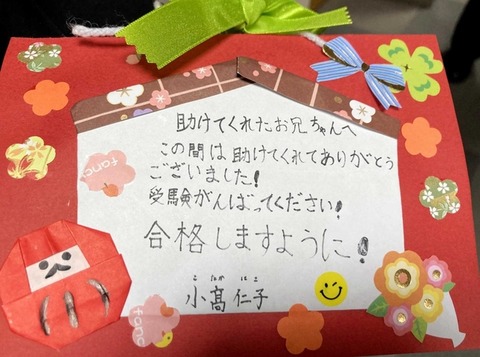 助けてくれたお兄ちゃんへ
この間は助けてくれてありがとう
ございました!
受験がんばってください!
合格しますように!
小髙 仁子
fanc
fanc